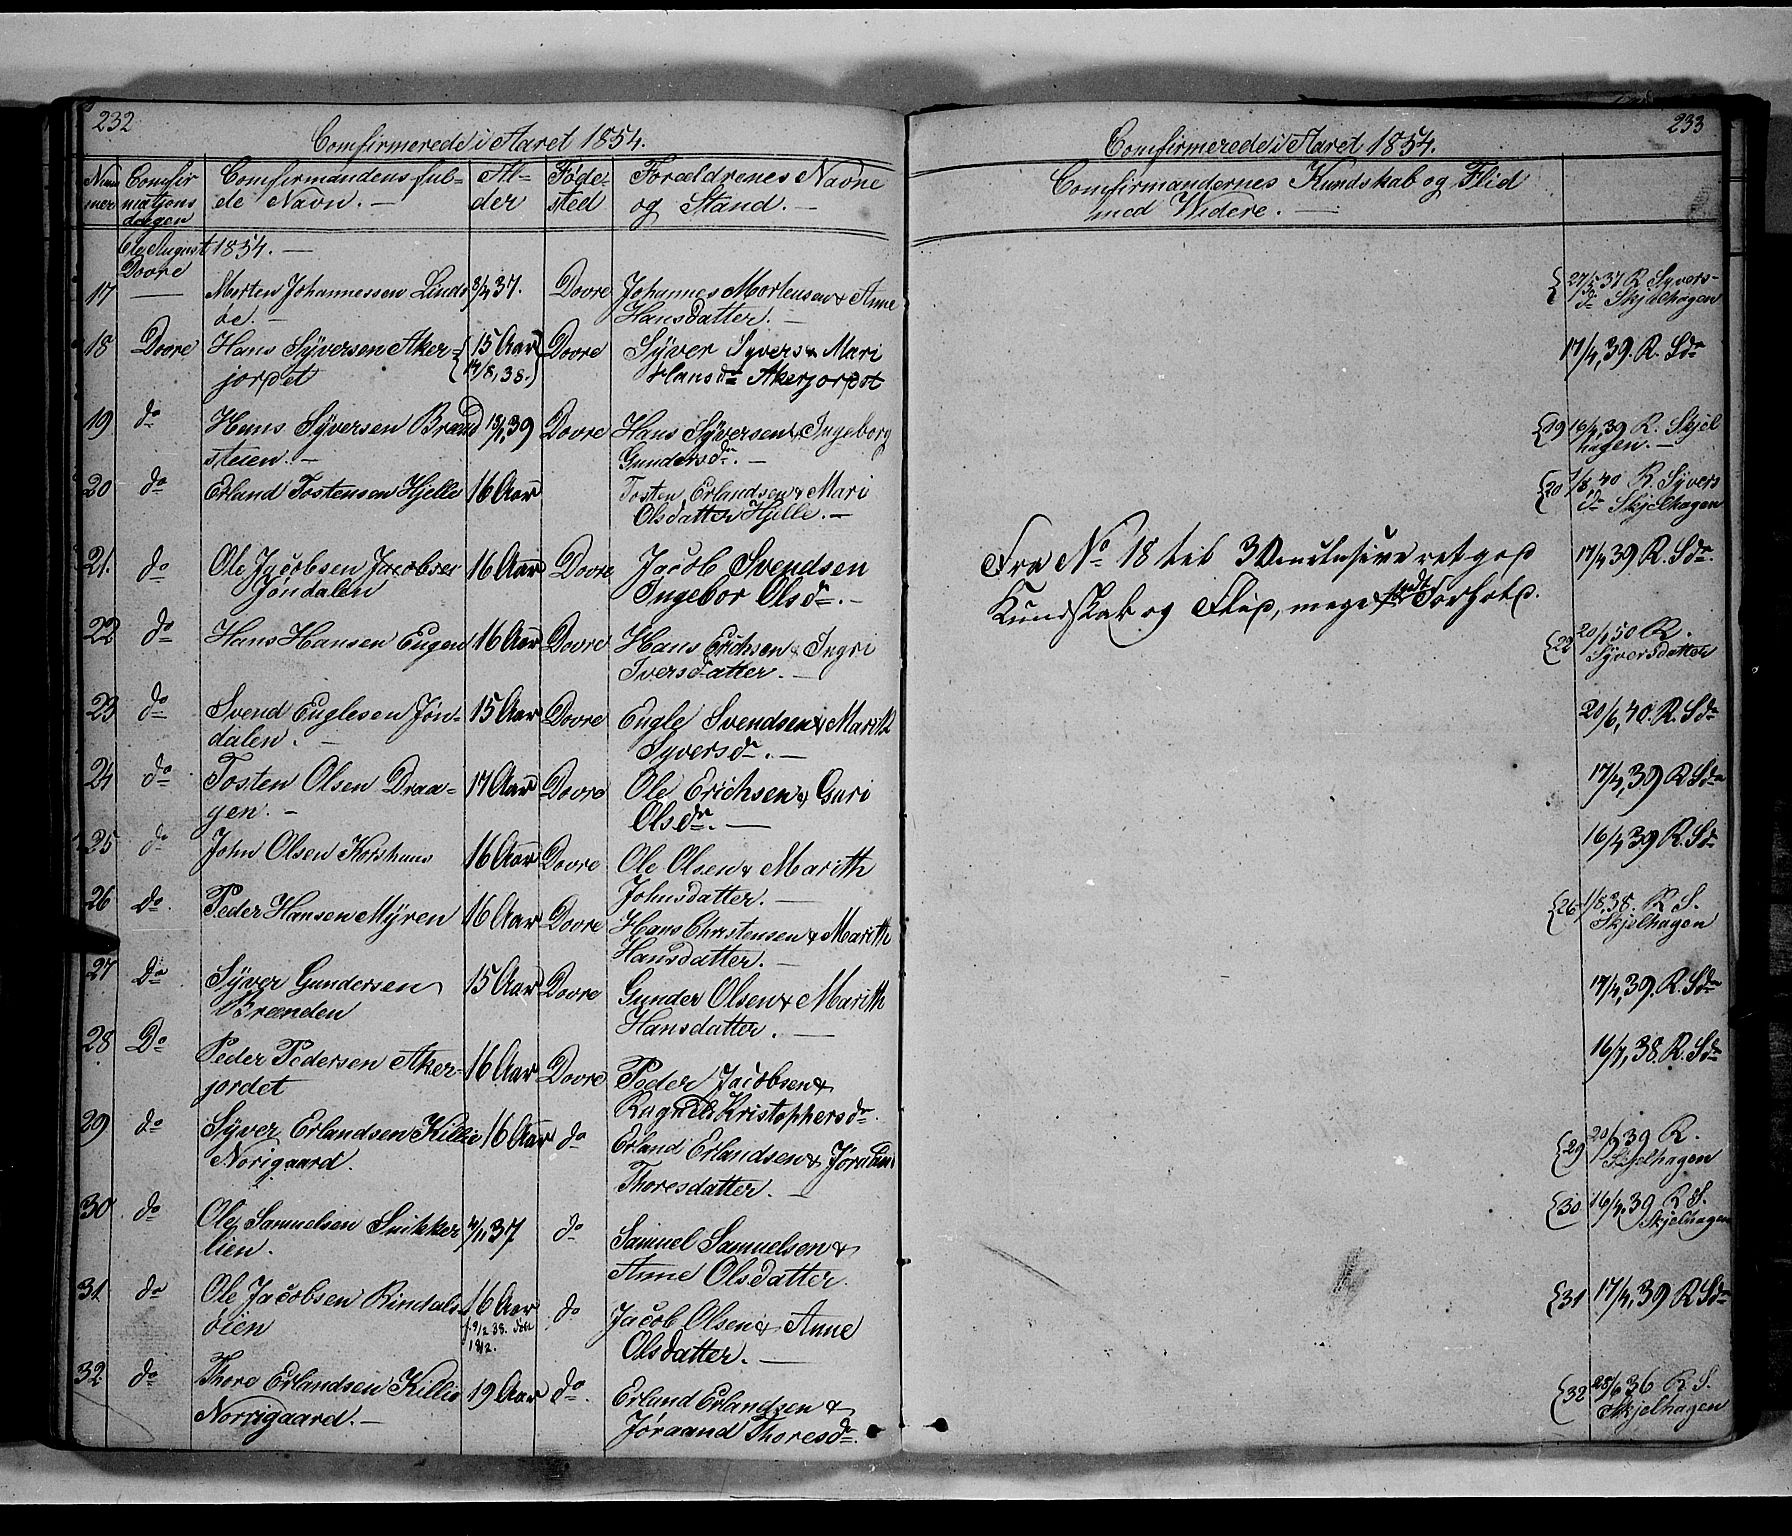 232
Comfirmerede i Aaret 1854.
Num
mer
Comfir
mations
dagen
Comfirmandens ful-
de Navn. —
Al-
der
Føde-
sted
Forældrenes Navne
og Stand. —
August 1854. —
Dovre
17 — Morten Johannessen Linds
øe. —
37. Dovre Johannes Mortensen & Anne
Hansdatter. —
18 Dovre Hans Syversen Aker-
jordet
15 Aar
(17/8, 38.)
Dovre Syver Syvers & Mari
Hansd Akerjordet
19 do Hans Syversen Brænd
steien. —
39 Dovre Hans Syversen & Ingeborg
Gundersd. —
20 do Erland Tostensen Hjelle 16 Aar
Tosten Erlandsen & Mari
Olsdatter Hjelle. —
21. do Ole Jacobsen Jacobsen
Jøndalen
16 Aar Dovre Jacob Svendsen
Ingebor Olsd. —
22 do Hans Hansen Eugen 16 Aar Dovre Hans Erichsen & Ingri
Iversdatter. —
23 do Svend Englesen Jøn-
dalen. —
15 Aar Dovre Engle Svendsen & Marith
Syversd. —
24 do Tosten Olsen Draa-
gen. —
17 Aar Dovre Ole Erichsen & Guri
Olsd. —
25 do John Olsen Korshaus 16 Aar Dovre Ole Olsen & Marith
Johnsdatter. —
26 Do. Peder Hansen Myren 16 Aar Dovre Hans Christensen & Marith
Hansdatter. —
27 Do Syver Gundersen
Brænden
15 Aar Dovre Gunder Olsen & Marith
Hansdatter. —
28 Do Peder Pedersen Aker-
jordet
16 Aar Dovre Peder Jacobsen &
Kristophersd.
29 do Syver Erlandsen Killie
Norigaard.
16 Aar do Erland Erlandsen &
Thoresdatter. —
30 do Ole Samuelsen Snikker
lien.
37 do Samuel Samuelsen &
Anne Olsdatter.
31 do Ole Jacobsen Rindals
øien
16 Aar
do Jacob Olsen & Anne
Olsdatter. —
32 do Thore Erlandsen Killie
Norrigaard. —
19 Aar do. Erland Erlandsen &
Jøraand Thoresd.
233
Comfirmerede i Aaret 1854.
Comfirmandernes Kundskab og Flid
med Widere. —
37 R Syvers-
d Skjelhagen
17/4, 39. R. Sd
{19 16/4, 39 R. Skjel
hagen. —
{20 40 R. Syvers
d Skjelhagen
Fra No 18 til inclusive ret god
Kundskab og Flid, meget godt Forhold.
17/4 39 R. Sd.
{22 50 R.
Syversdatter
20/6, 40. R. Sd
17/4, 39 R Sd
16/4 39 R. Sd
{26 38. R S.
Skjelhagen
17/4, 39. R. Sd
16/7, 38. R. Sd
{29 39 R.
Skjelhagen
{30 16/4, 39 R S.
Skjelhagen
{31 17/4, 39 R Sd
{32 36 R S.
Skjelhagen